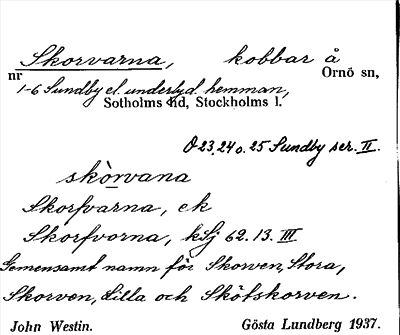 Skorvarna, kobbar å
nr Ornö sn,
1-6 Sundby el. underlyd. hemman,
Sotholms hd, Stockholms l.
O 23, 24 o. 25 Sundby ser. II.
skòrvana
Skorfvarna, ek
Skorfvorna, kSj 62. 13. III
Gemensamt namn för Skorven, Stora,
Skorven, Lilla och Skötskorven.
John Westin. Gösta Lundberg 1937.